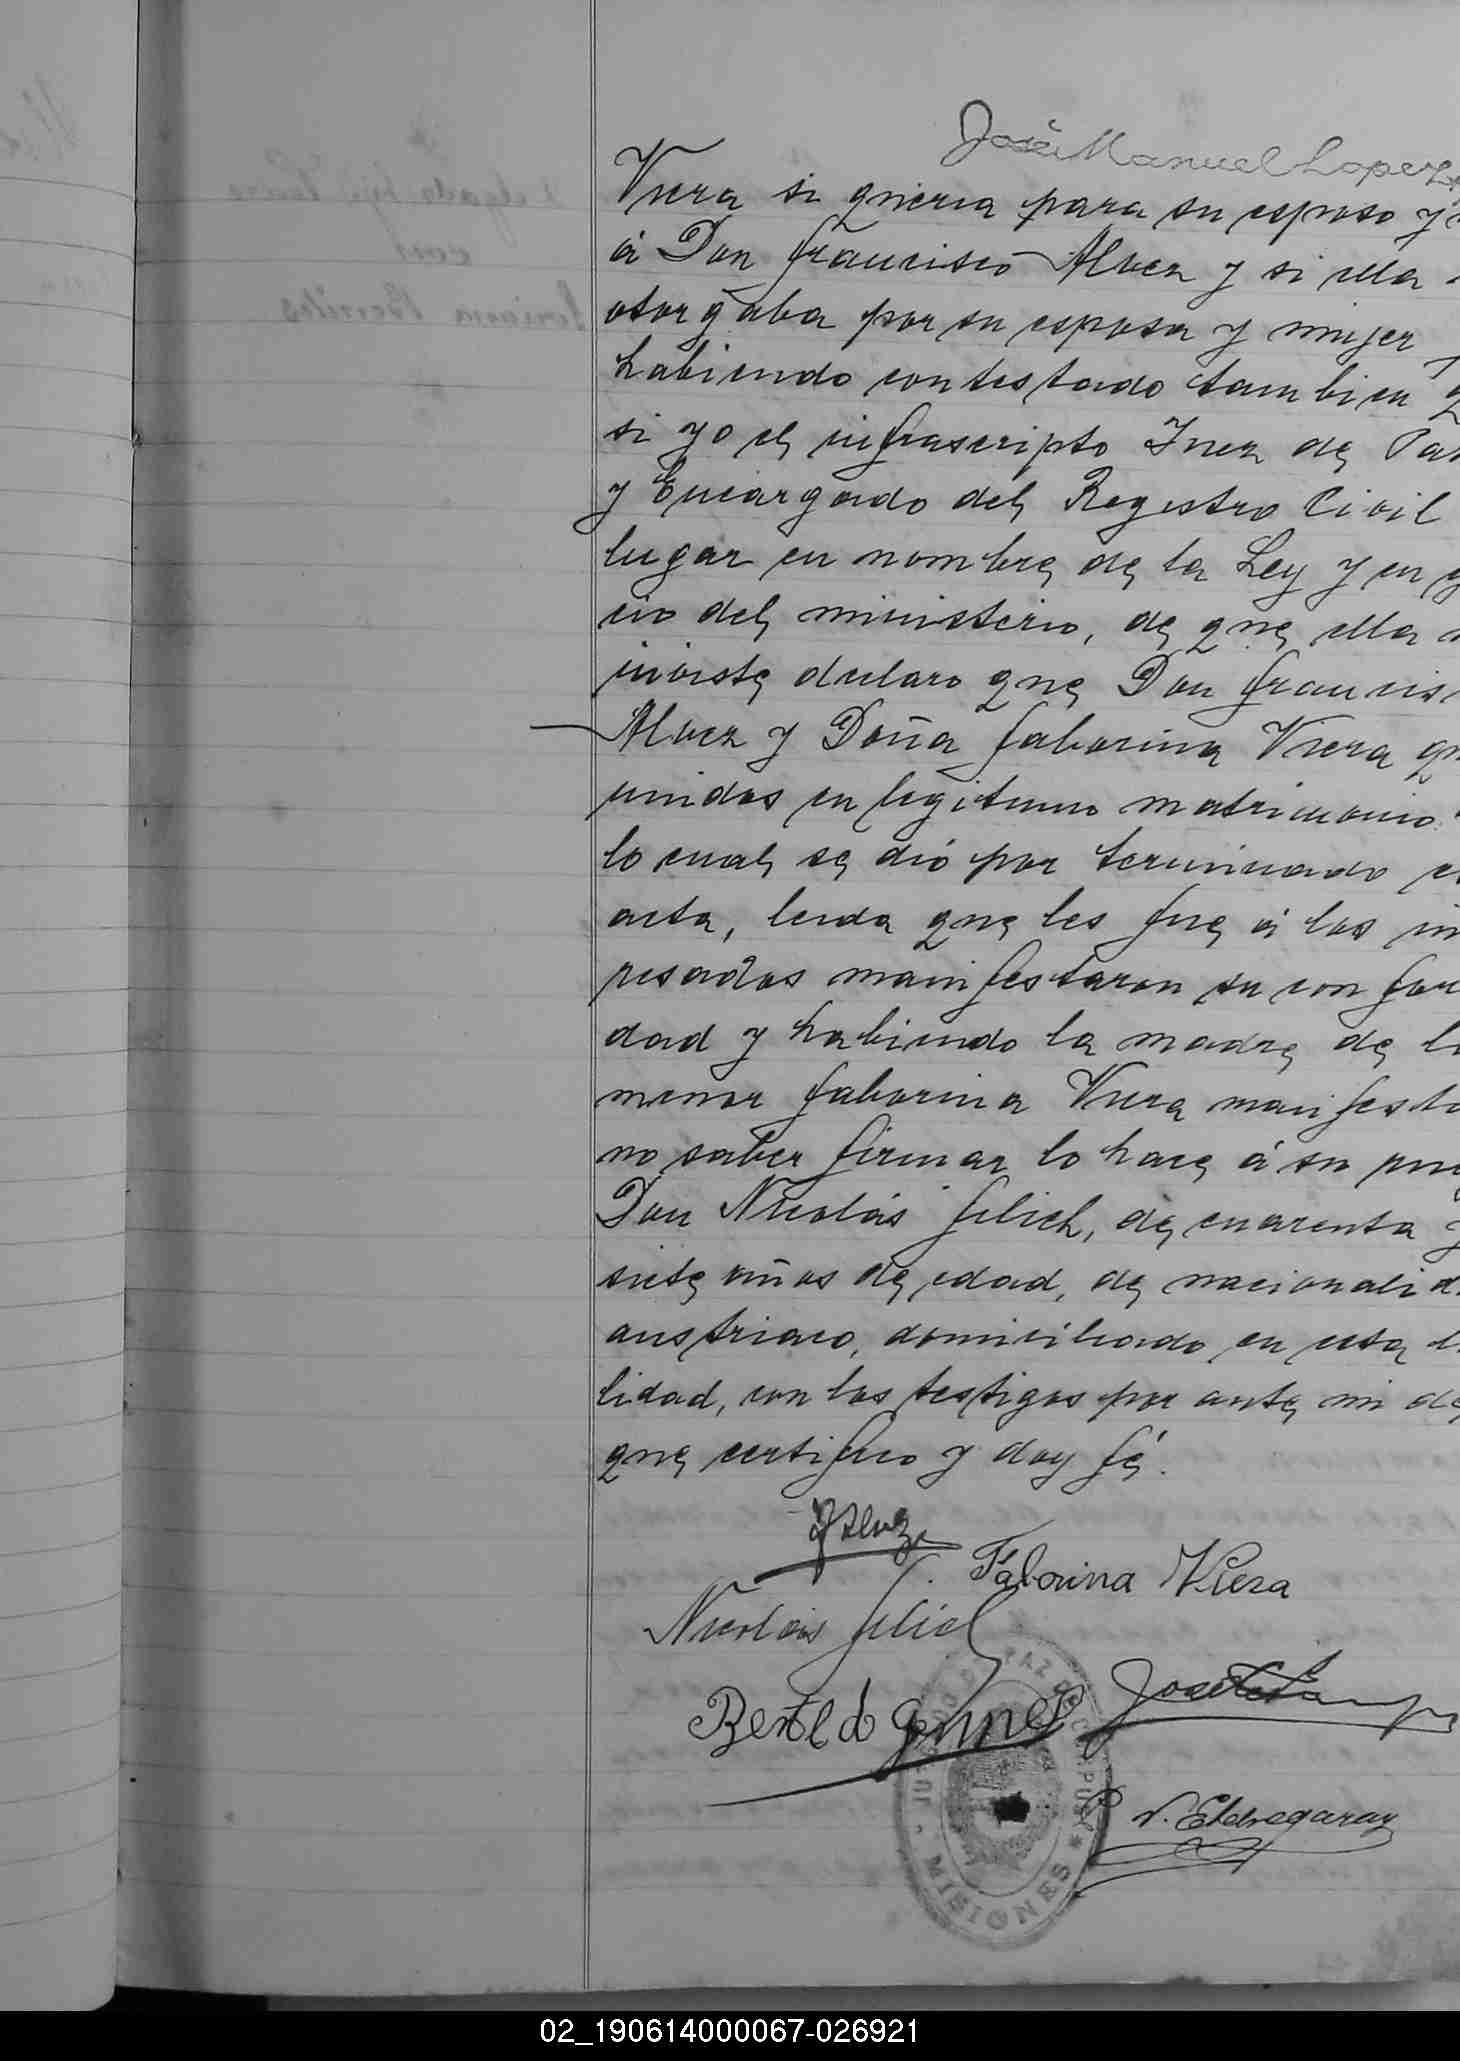 José Manuel Lopez
Viera si queria para su esposo y
á Don francisco Alvez y si ella
otorgaba por su esposa y mujer
habiendo contestado tambien q
si yo el infrascripto Juez de Paz
y Encargado del Registro Civil
lugar en nombre de la Ley y en
cio del ministerio, de que ella
inviste declaro que Don francis
Alvez y Doña faborina Viera qu
unidos en legitimo matrimonio
lo cual se dió por terminado e
acta, leida que les fué á los in
resados manifestaron su confor
dad y habiendo la madre de la
menor faborina Viera manifesta
no saber firmar lo hace á su rue
Don Nicolás Jelich, de cuarenta y
siete años de edad, de nacionalid
austriaco, domiciliado en esta l
lidad, con los testigos por ante mi de
que certifico y doy fé.
Alvez
Faborina Viera
Nicolás Jelich
Jose
V. Etchegaray
JUZGADO DE PAZ DE CORPUS
MISIONES
Delgado
con
Benites
02_190614000067-026921